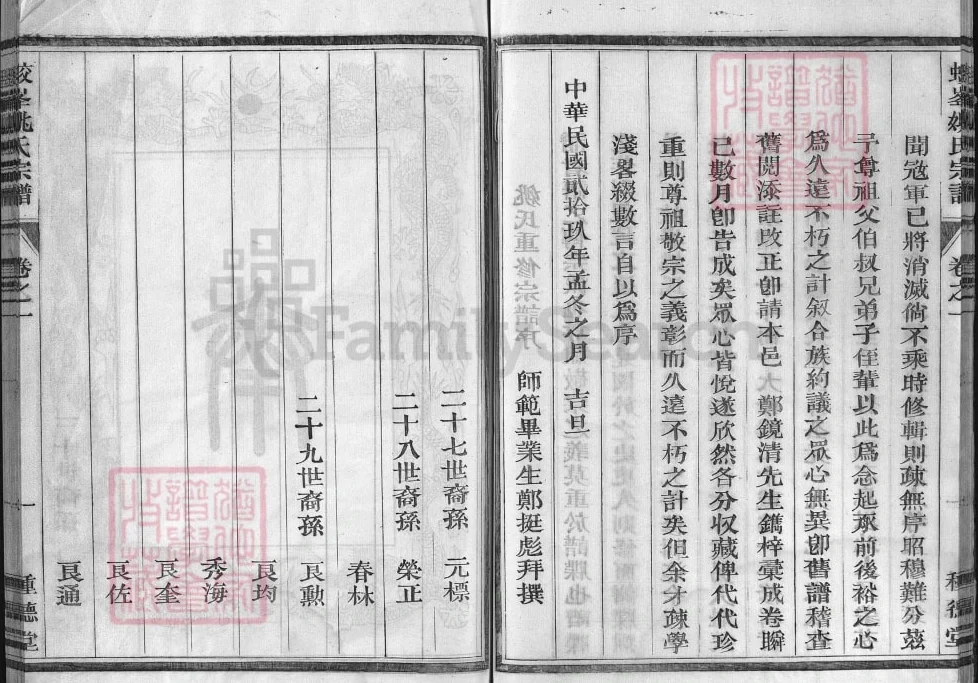 聞冦軍已將消滅倘不乘時修輯則疎無序昭穆難分茲
子奪祖父伯叔兄弟子侄輩以此爲念起承前後裕之心
爲久遠不朽之計叙合族約議之眾心無異卽舊譜稽查
舊閱添註改正卽請本邑大鄭鏡清先生鐫梓彙成卷瞬
已數月卽告成矣眾心皆悅遂欣然各分收藏俾代代珍
重則尊祖敬宗之義彰而久遠不朽之計矣但余才疎學
淺畧綴數言自以爲序
中華民國貳拾玖年孟冬之月 吉旦
師範畢業生鄭挺彪拜撰
二十七世裔孫 元標
二十八世裔孫 榮正
春林
二十九世裔孫 良勳
良均
秀海
良奎
良佐
良通
姚氏宗譜 卷之一 一 種德堂
FamilySearch